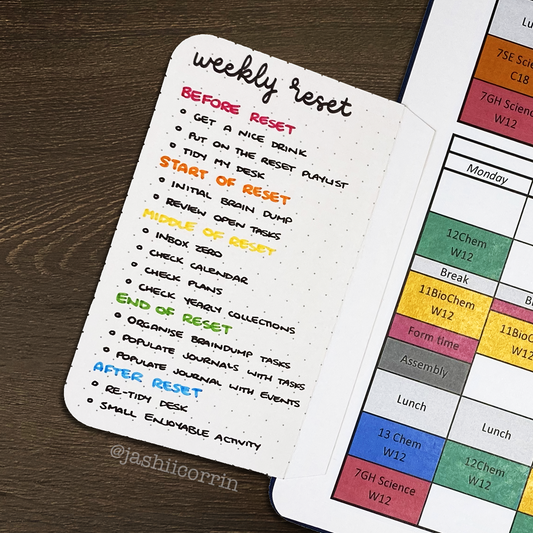 weekly reset
BEFORE RESET
GET A NICE DRINK
PUT ON THE RESET PLAYLIST
TIDY MY DESK
START OF RESET
INITIAL BRAIN DUMP
REVIEW OPEN TASKS
MIDDLE OF RESET
INBOX ZERO
CHECK CALENDAR
CHECK PLANS
CHECK YEARLY COLLECTIONS
END OF RESET
ORGANISE BRAINDUMP TASKS
POPULATE JOURNALS WITH TASKS
POPULATE JOURNAL WITH EVENTS
AFTER RESET
RE-TIDY DESK
SMALL ENJOYABLE ACTIVITY
@jashiicorrin
7SE Scie
C18
7GH Science
W12
Monday
12Chem
W12
Break
11BioChem
W12
Form time
Assembly
Lunch
13 Chem
W12
7GH Science
W12
11BioC
W12
Lunch
12Chem
W12